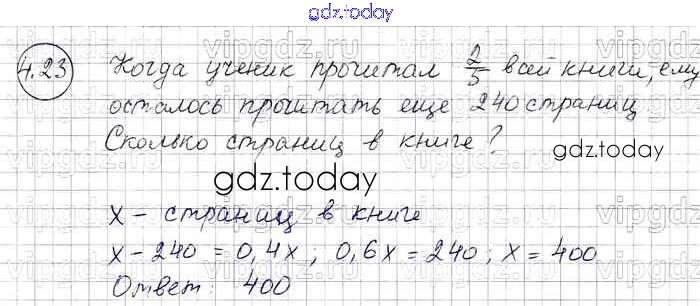 gdz.today
4.23
Когда ученик прочитал 2/5 всей книги, ему
осталось прочитать еще 240 страниц
Сколько страниц в книге?
gdz.today
gdz.today
x - страниц в книге
x - 240 = 0,4x ; 0,6x = 240 ; x = 400
Ответ: 400